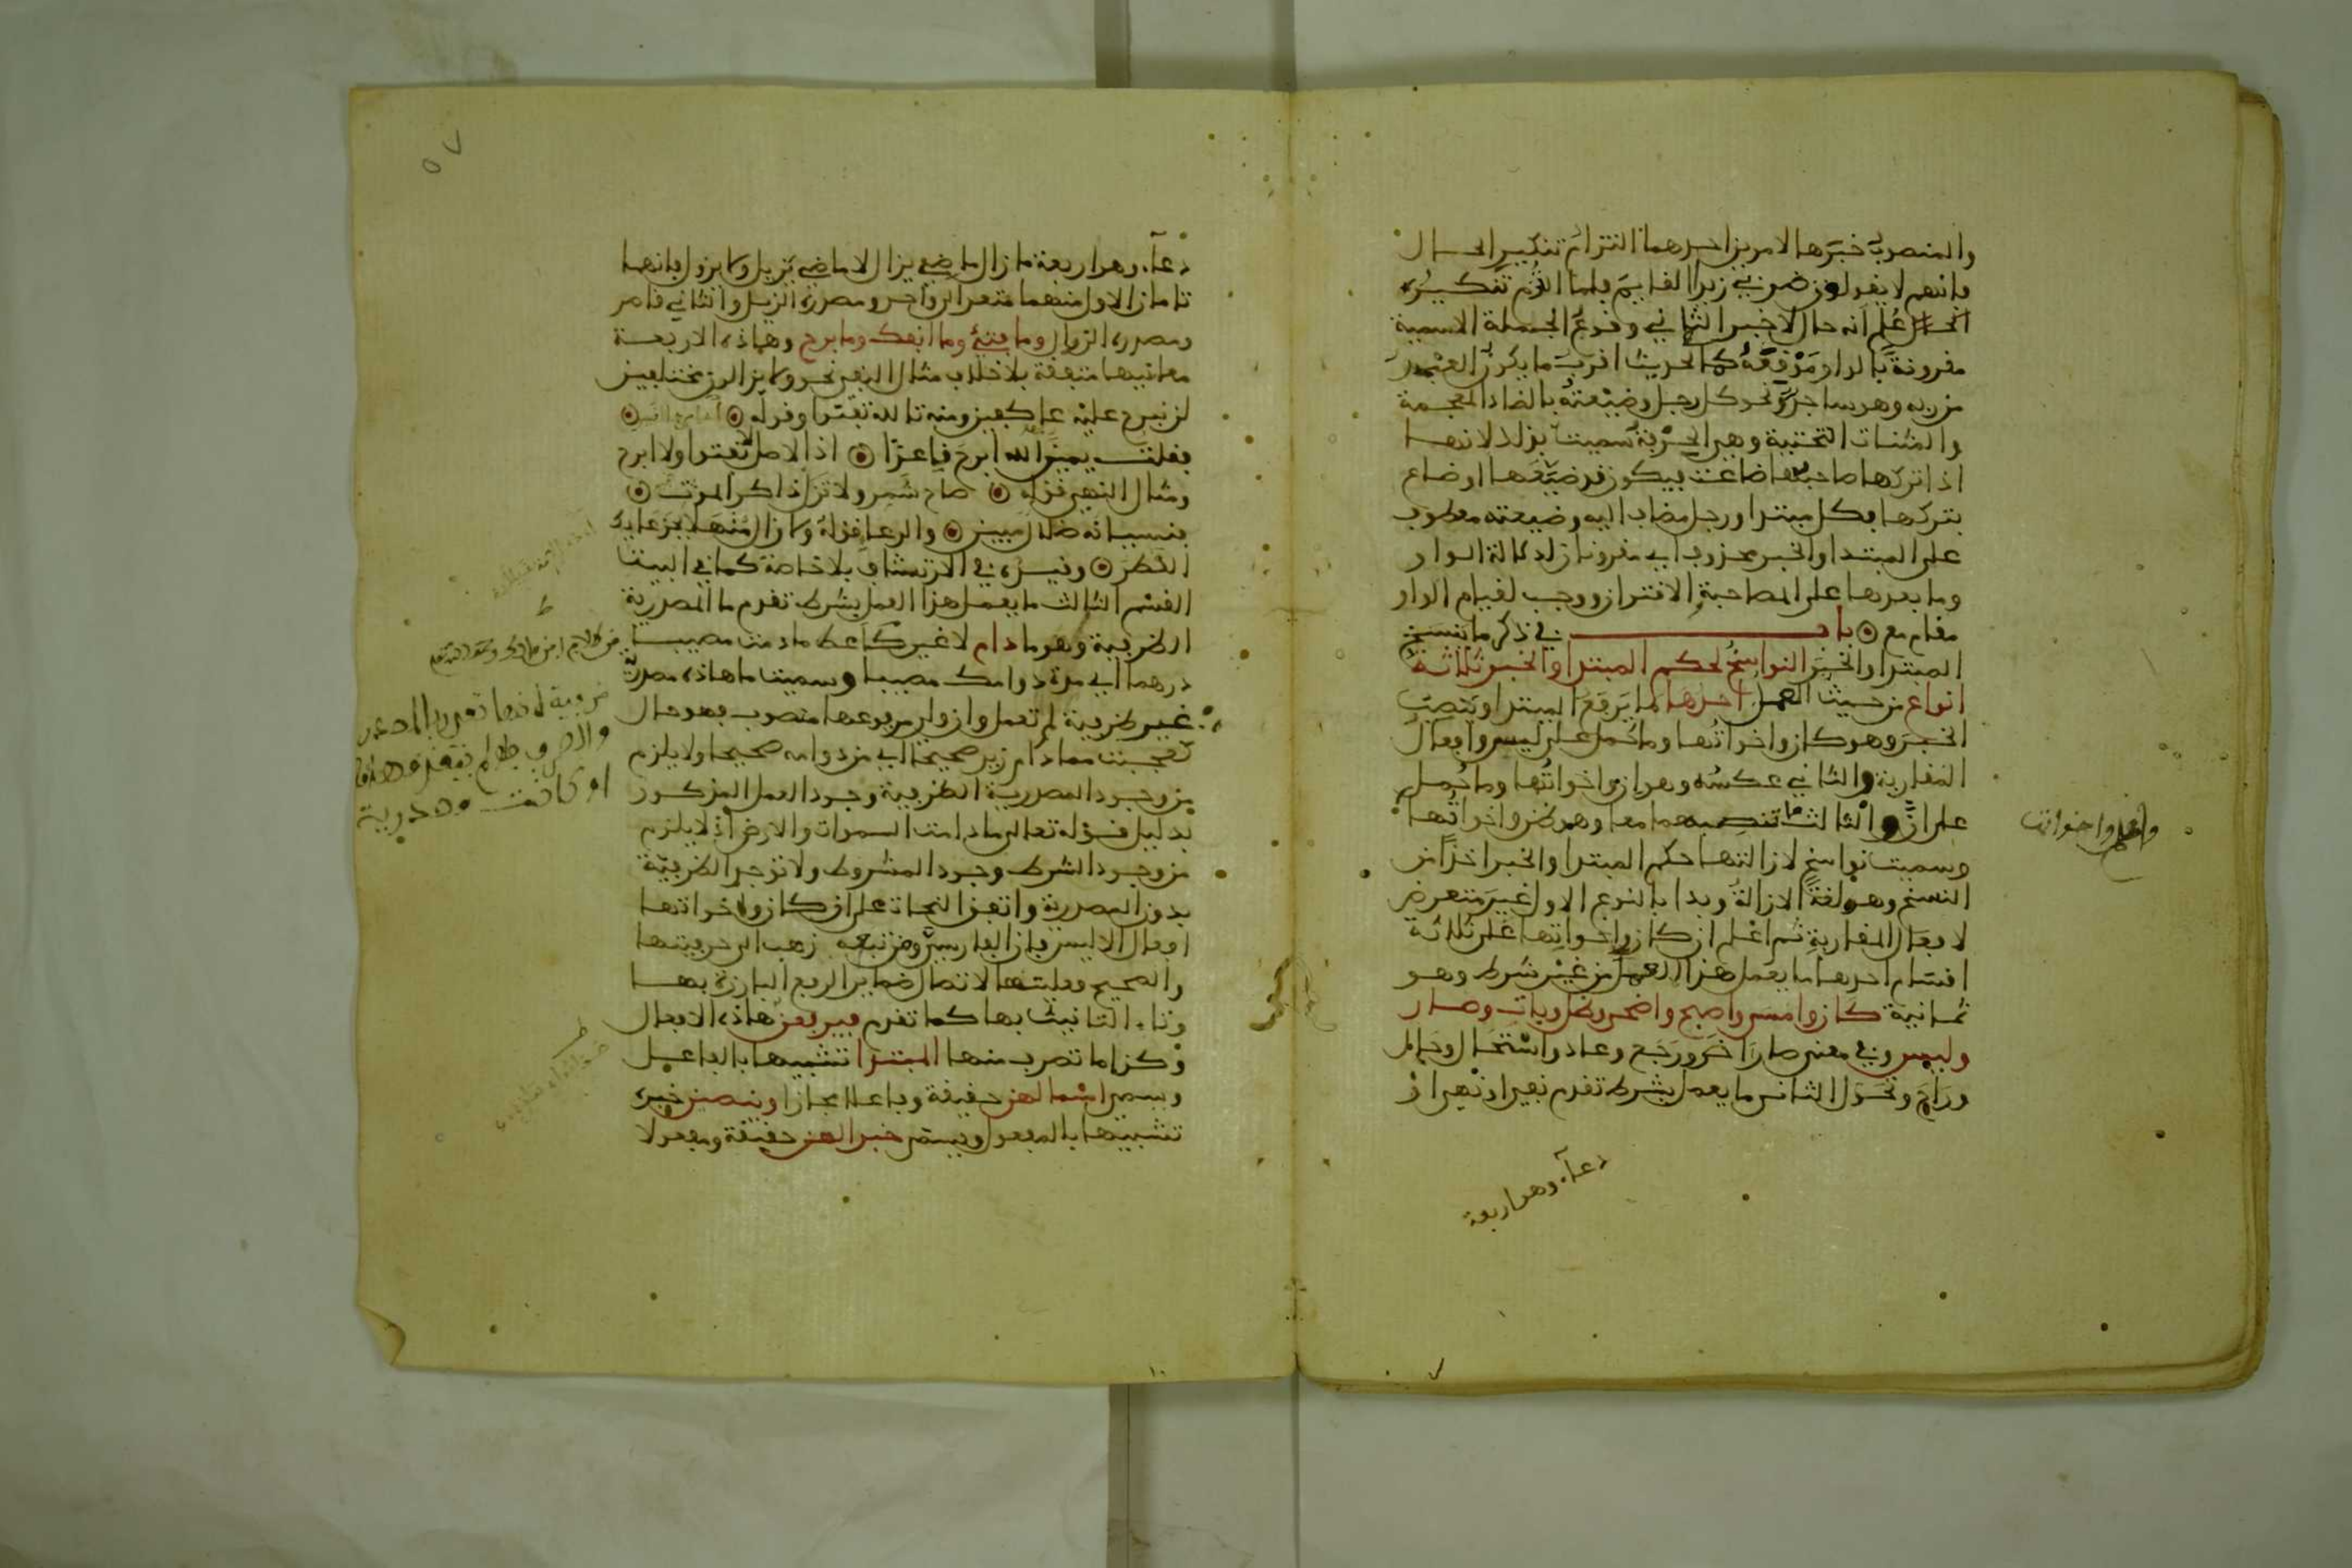 والمنصوب خبرها لامرين احدهما التزام تنكير الحال
فانهم لا يقولون ضربي زيدا القايم فلما التزم تنكيره
علم انه حال لا خبر الثاني وقوع الجملة الاسمية
مقرونة بالواو موقعه كالحديث اقرب ما يكون العبد
من ربه وهو ساجد ونحو كل رجل وضيعته بالضاد المعجمة
والمثناة التحتية وهي الحرفة سميت بذلك لانها
اذا تركها صاحبها ضاعت فيكون قد ضيعها او ضاع
بتركها فكل مبتدا ورجل مضاف اليه وضيعته معطوف
على المبتدا والخبر محذوف اي مقرونان لدلالة الواو
وما بعدها على المصاحبة والاقتران ووجب لقيام الواو
مقام مع باب في ذكر ما ينسخ
المبتدا والخبر النواسخ لحكم المبتدا والخبر ثلاثة
انواع من حيث العمل احدها ما يرفع المبتدا وينصب
الخبر وهو كان واخواتها وما حمل على ليس وافعال
المقاربة والثاني عكسه وهو ان واخواتها وما حمل
على ان والثالث ما تنصبهما معا وهو ظن واخواتها
وسميت نواسخ لازالتها حكم المبتدا والخبر اخذا من
النسخ وهو لغة الازالة وبدا بالنوع الاول غير متعرض
لافعال المقاربة ثم اعلم ان كان واخواتها على ثلاثة
اقسام احدها ما يعمل هذا العمل من غير شرط وهو
ثمانية كان وامسى واصبح واضحى وظل وبات وصار
وليس وفي معنى صار آض ورجع وعاد واستحال وحار
وراح وتحول الثاني ما يعمل بشرط تقدم نفي او نهي او
دعآء وهو اربعة
دعآء وهو اربعة ما زال ماضي يزال لا ماضي يزيل ولا يزول فانهما
تامان الاول منهما متعد الى واحد ومصدره الزيل والثاني قاصر
ومصدره الزوال وما فتئ وما انفك وما برح وهاذه الاربعة
معانيها متفقة بلا خلاف مثال النفي نحو ولا يزالون مختلفين
لن نبرح عليه عاكفين ومنه تالله تفتؤا وقوله
فقلت يمين الله ابرح قاعدا اذ الاصل لا تفتؤا ولا ابرح
ومثال النهي قوله صاح شمر ولا تزل ذاكر الموت
فنسيانه ضلال مبين والدعا قوله ولا زال منهلا بجرعايك
القطر وقيده في الارتشاف بلا خاصة كما في البيت
القسم الثالث ما يعمل هذا العمل بشرط تقدم ما المصدرية
الظرفية وهو ما دام لا غير كاعط ما دمت مصيبا
درهما اي مدة دوامك مصيبا وسميت ما هاذه مصدرية
غير ظرفية لم تعمل وان ولي مرفوعها منصوب فهو حال
كعجبت مما دام زيد صحيحا اي من دوامه صحيحا ولا يلزم
من وجود المصدرية الظرفية وجود العمل المذكور
بدليل قوله تعالى ما دامت السموات والارض اذ لا يلزم
من وجود الشرط وجود المشروط ولا توجد الظرفية
بدون المصدرية واتفق النحاة على ان كان واخواتها
افعال الا ليس فان الفارسي ومن تبعه ذهب الى حرفيتها
والصحيح فعليتها لاتصال ضماير الرفع البارزة بها
وتاء التانيث بها كما تقدم فيرفعن هاذه الافعال
وكذا ما تصرف منها المبتدا تشبيها بالفاعل
ويسمى اسما لهن حقيقة وفاعلا مجازا وينصبن خبره
تشبيها بالمفعول ويسمى خبرا لهن حقيقة ومفعولا